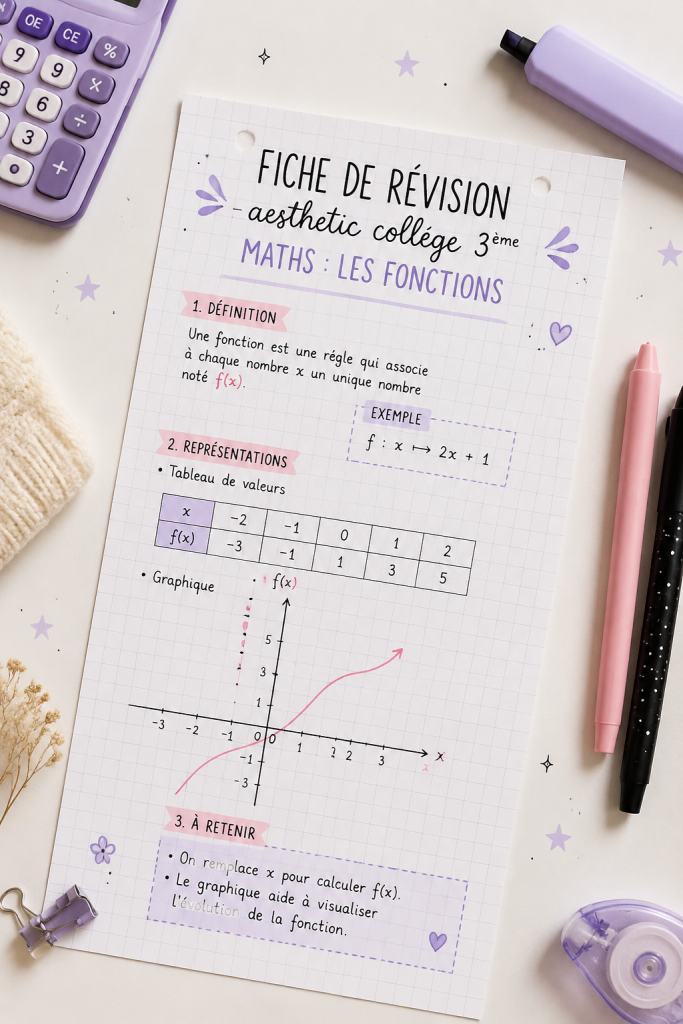 OE
CE
%
9
9
X
8
6
÷
3
+
FICHE DE RÉVISION
- aesthetic collége 3ème
MATHS : LES FONCTIONS
1. DÉFINITION
Une fonction est une régle qui associe
à chaque nombre x un unique nombre
noté f(x).
EXEMPLE
f : x ↦ 2x + 1
2. REPRÉSENTATIONS
• Tableau de valeurs
x -2 -1 0 1 2
f(x) -3 -1 1 3 5
• Graphique
f(x)
5
3
1
-3 -2 -1 0 0 1 2 2 3 x
-1
-3
3. À RETENIR
• On remplace x pour calculer f(x).
• Le graphique aide à visualiser
l'évolution de la fonction.